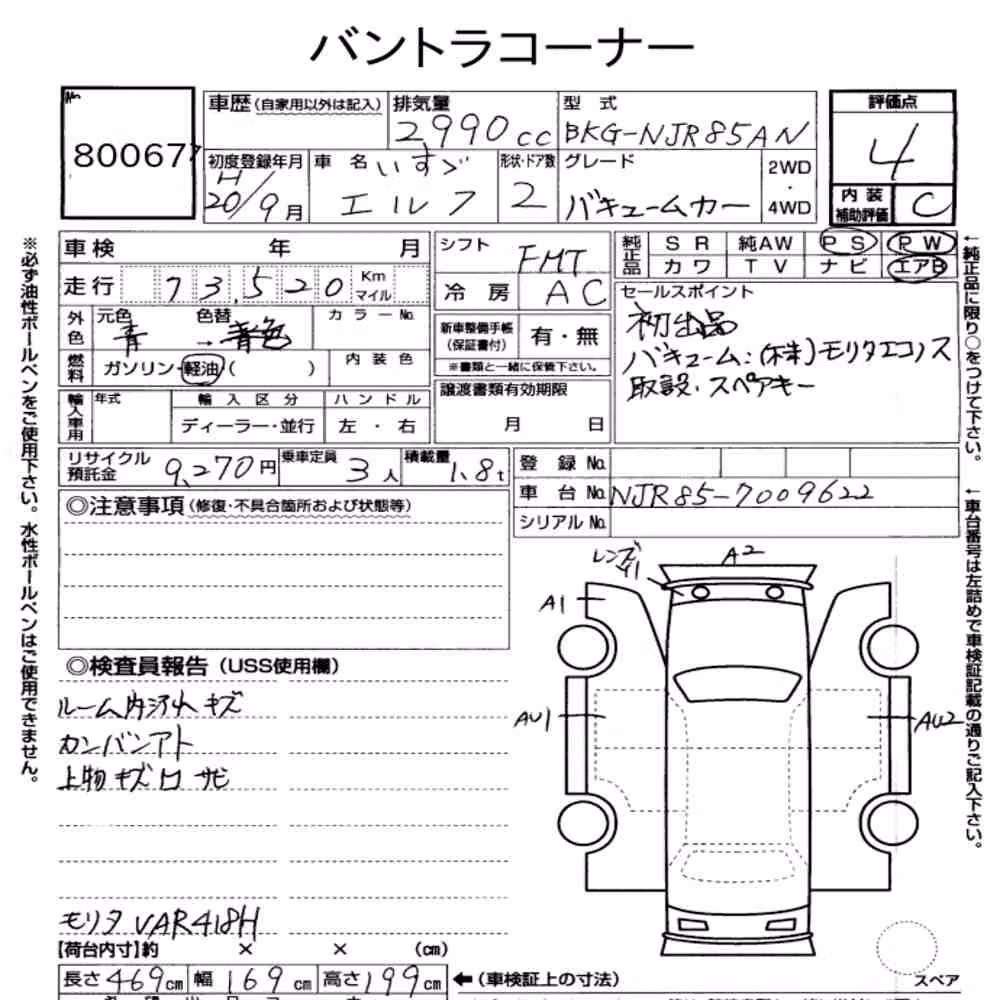 バントラコーナー
No.
80067
車歴(自家用以外は記入) 排気量 型 式
2990cc BKG-NJR85AN
評価点
4
初度登録年月 車 名 いすゞ 形状・ドア数 グレード 2WD
・
H
20/9月 エルフ 2 バキュームカー 4WD
内装
補助評価 C
車検 年 月
シフト FMT
純正品 SR 純AW PS PW
カワ TV ナビ エアB
走行 73,520 Km
マイル
冷房 AC
セールスポイント
初出品
バキューム:(株)モリタエコノス
取説・スペアキー
外色 元色 色替 カラーNo.
青 → 青色
新車整備手帳
(保証書付) 有・無
※書類と一緒に保管下さい。
燃料 ガソリン・軽油( ) 内装色
譲渡書類有効期限
月 日
輸入車用 年式 輸入区分 ハンドル
ディーラー・並行 左・右
リサイクル
預託金 9,270円 乗車定員 3人 積載量 1.8t
登録No.
車台No. NJR85-7009622
シリアルNo.
◎注意事項(修復・不具合箇所および状態等)
レンズ
A2
A1
AU1
AU2
◎検査員報告(USS使用欄)
ルーム内 キズ
カンバンアト
上物キズ サビ
モリタ VAR418H
【荷台内寸】約 × × (cm)
長さ469cm 幅169cm 高さ199cm ←(車検証上の寸法)
スペア
※必ず油性ボールペンをご使用下さい。水性ボールペンはご使用できません。
←純正品に限り○をつけて下さい。
←車台番号は左詰めで車検証記載の通りご記入下さい。